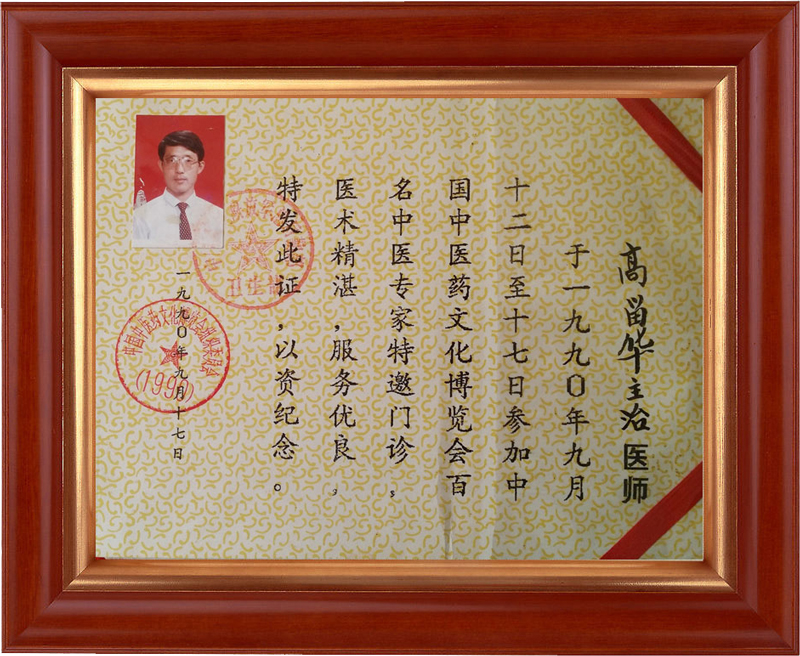 高留华主治医师
于一九九〇年九月
十二日至十七日参加中
国中医药文化博览会百
名中医专家特邀门诊。
医术精湛，服务优良，
特发此证，以资纪念。
一九九〇年九月十七日
中国中医药文化博览会组织委员会
(1990)